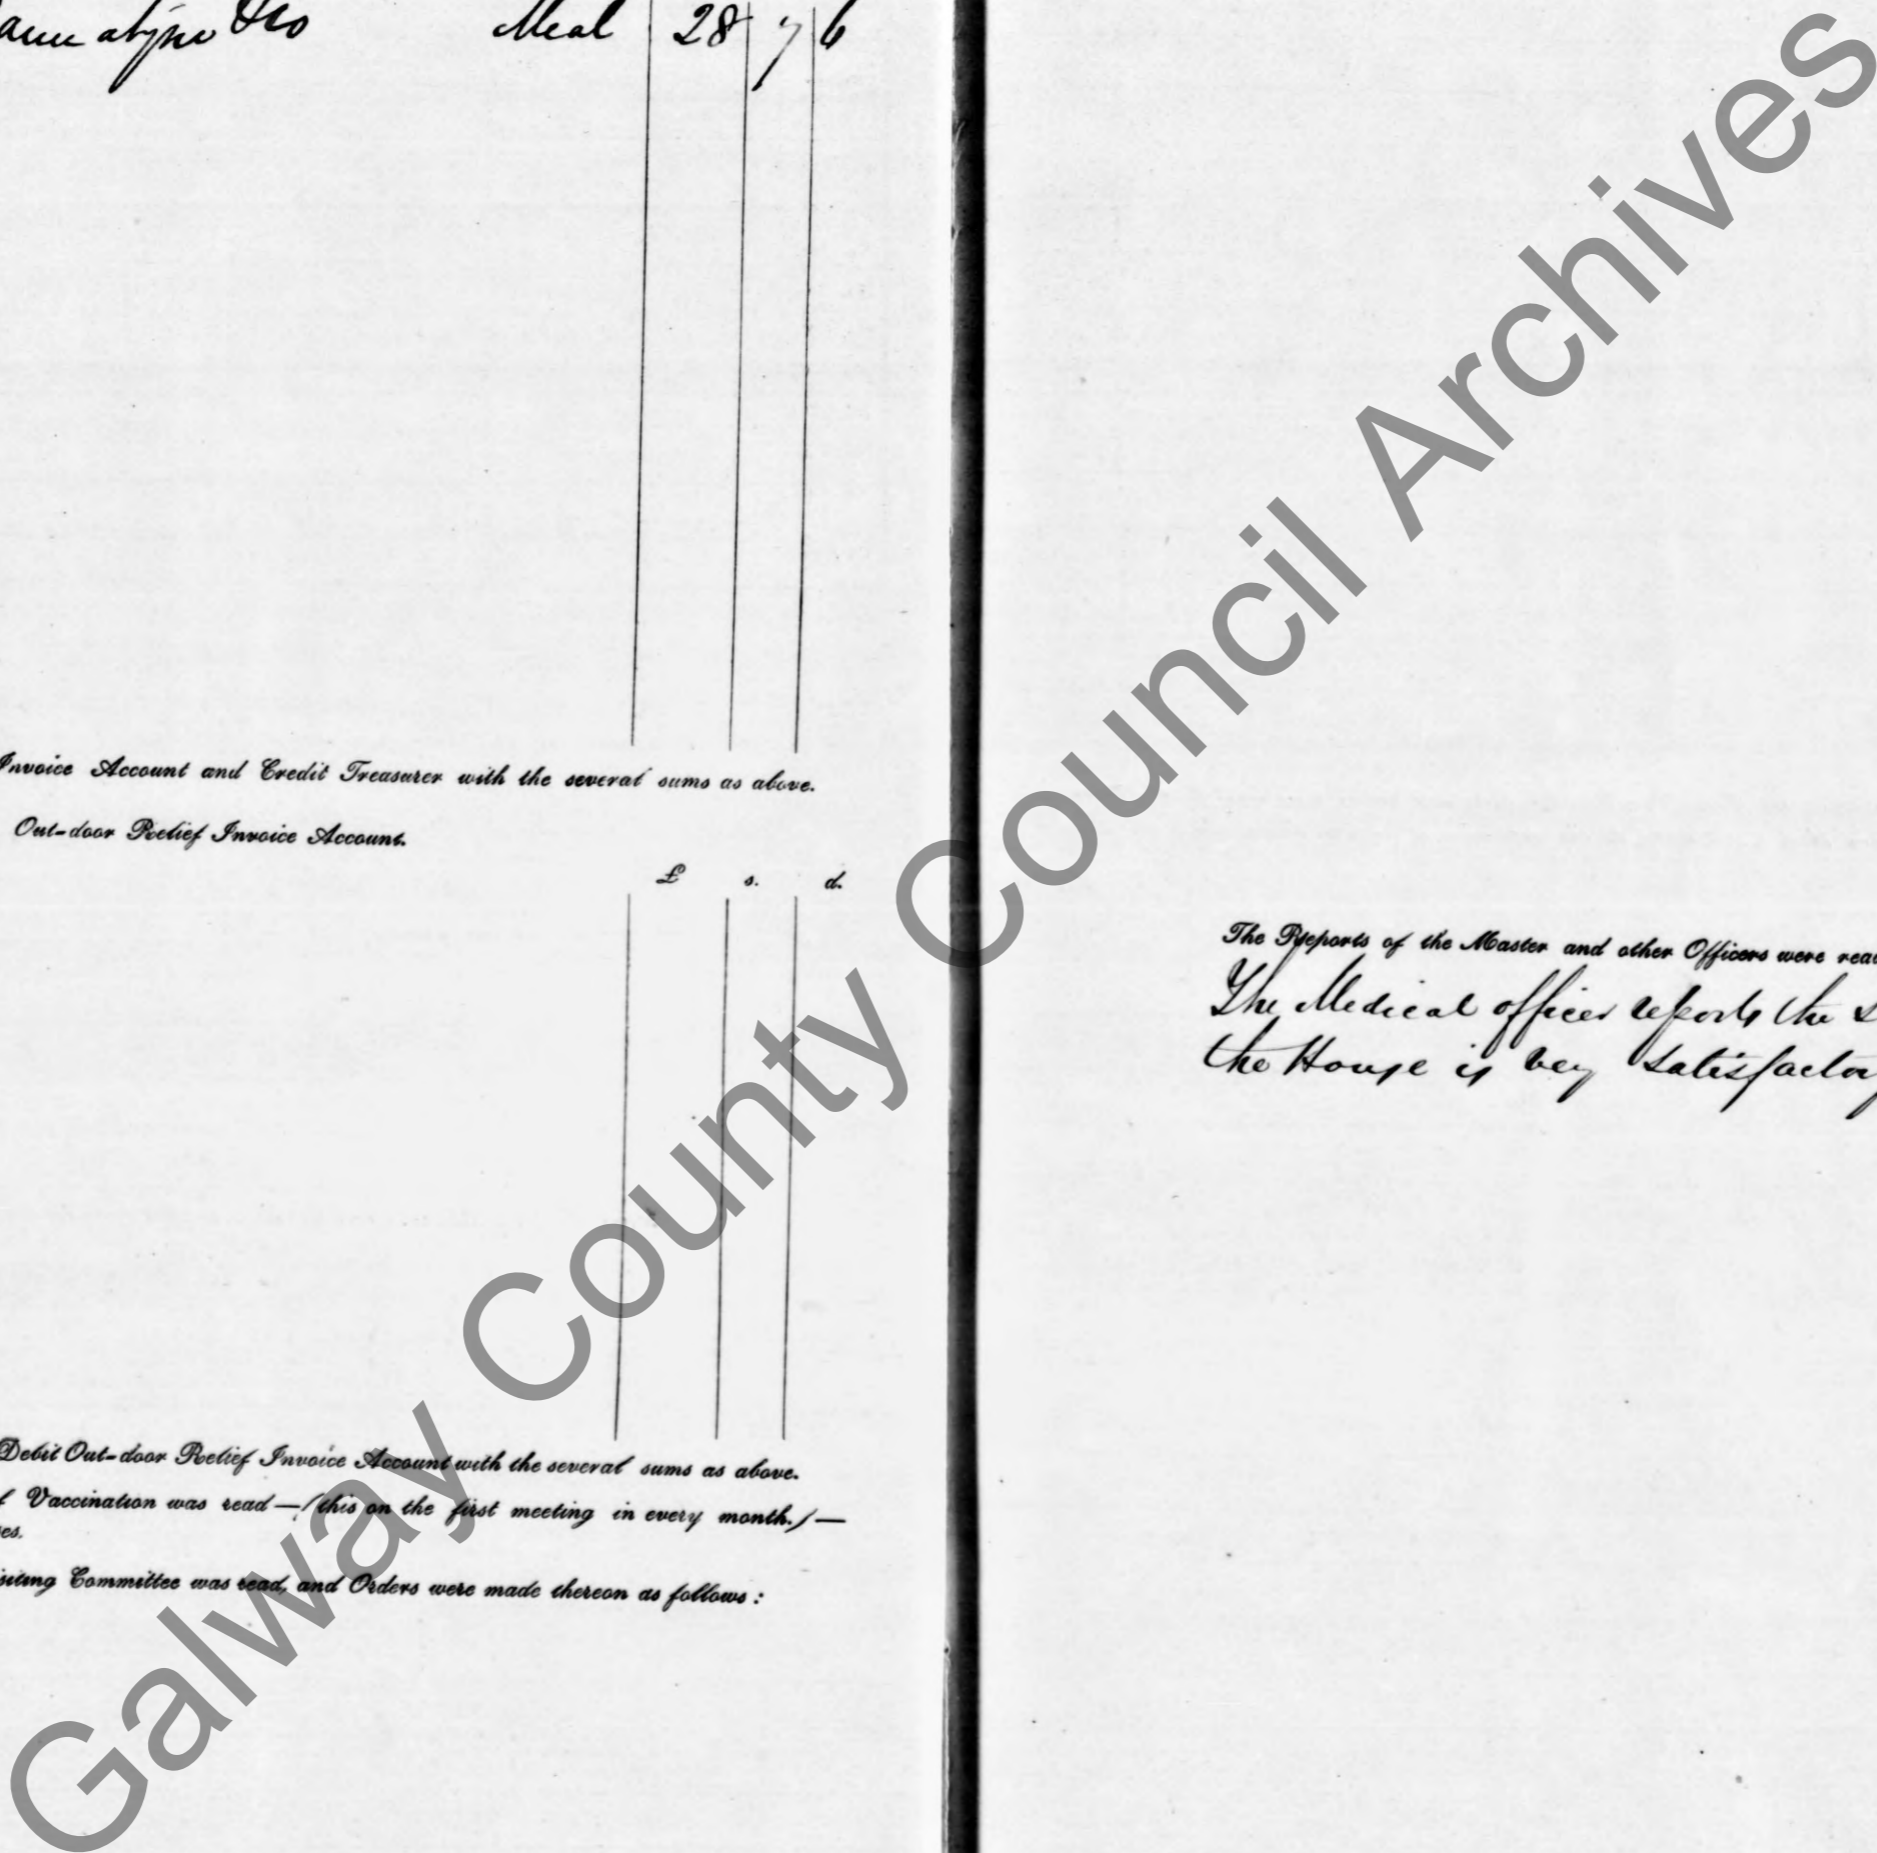 & Co Meal 28 7 6
Invoice Account and Credit Treasurer with the several sums as above.
Out-door Relief Invoice Account.
£ s. d.
Debit Out-door Relief Invoice Account with the several sums as above.
Vaccination was read—(this on the first meeting in every month.)—
es.
siting Committee was read, and Orders were made thereon as follows:
The Reports of the Master and other Officers were rea
The Medical officer reports the
the House is very satisfactory
Galway County Council Archives